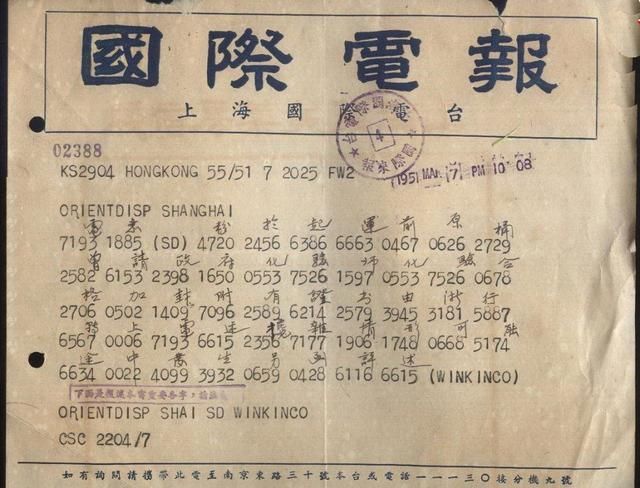 國際電報
上海國際電台
02388
KS2904 HONGKONG 55/51 7 2025 FW2
1951 MAR (7) PM 10 08
4
ORIENTDISP SHANGHAI
電悉 粉於起運前原桶
7193 1885 (SD) 4720 2456 6386 6663 0467 0626 2729
曾請政府化驗師化驗合
2582 6153 2398 1650 0553 7526 1597 0553 7526 0678
格加封附有證書由浙行
2706 0502 1409 7096 2589 6214 2579 3945 3181 5887
上電述攙雜情形可
6567 0006 7193 6615 2356 7177 1906 1748 0668 5174
途中發生另函詳述
6634 0022 4099 3932 0659 0428 6116 6615 (WINKINCO)
下面是覆述本電重要各字，請
ORIENTDISP SHAI SD WINKINCO
CSC 2204/7
如有詢問請攜帶此電至南京東路三十號本台或電話一一一三〇接分機九號